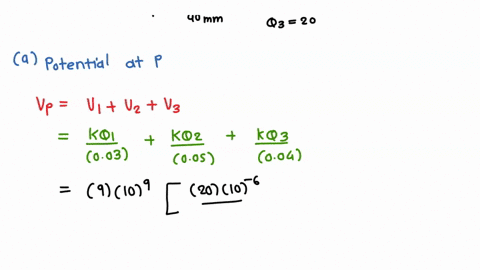 40 mm Q3 = 20
(a) Potential at P
Vp = V1 + V2 + V3
= KQ1/(0.03) + KQ2/(0.05) + KQ3/(0.04)
= (9)(10)^9 [ (20)(10)^-6